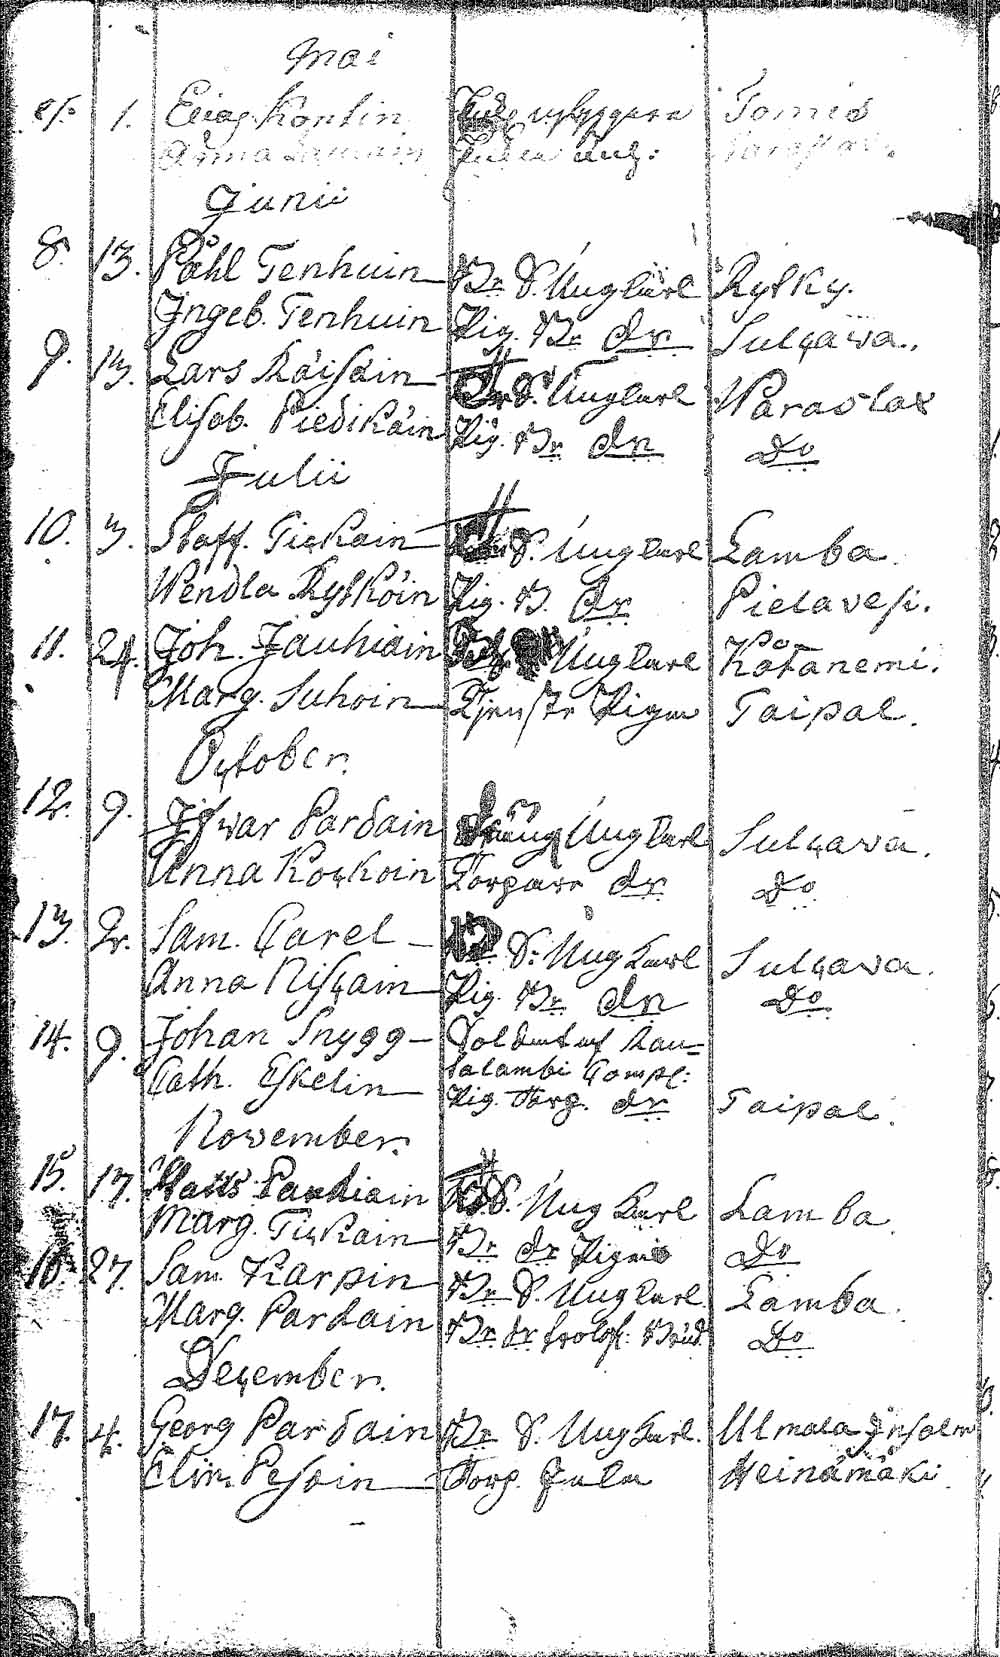 Mai
1. Elias Kontin nybyggare Tornio
Anna
Junii
8. 13. Påhl Tenhuin Br. S. Ungkarl Rytky.
Ingeb. Tenhuin Pig. Br. dr Sulcava.
9. 13. Lars Räisäin S. Ungkarl Paraslax
Elisab. Piedikäin Pig. Br. dr Do
Julii
10. 3. Staff. Tickain S. Ungkarl Lamba.
Wendla Rytköin Pig. B. dr Pielavesi.
11. 24. Joh. Jauhiain Ungkarl Kotanemi.
Marg. Suhoin Tjenste Pigan Taipal.
October.
12. 9. Ifwar Pardain Dräng Ungkarl Sulcava.
Anna Kockoin Torpare dr Do
13. 2. Sam. Carel S. Ungkarl Sulcava.
Anna Riscain Pig. Br. dr Do
14. 9. Johan Snygg Soldat af Rau=
Cath. Eskelin talambi Comp:
Pig. Torp. dr Taipal.
November.
15. 17. Matts Pardiain S. Ungkarl Lamba
Marg. Tickain Br. dr Pigan Do
16. 27. Sam. Karpin Br. S. Ungkarl. Lamba.
Marg. Pardain Br. dr Do
December.
17. 4. Georg Pardain Br. S. Ungkarl. Ulmala
Elin. Pesoin Torp. Heinämäki